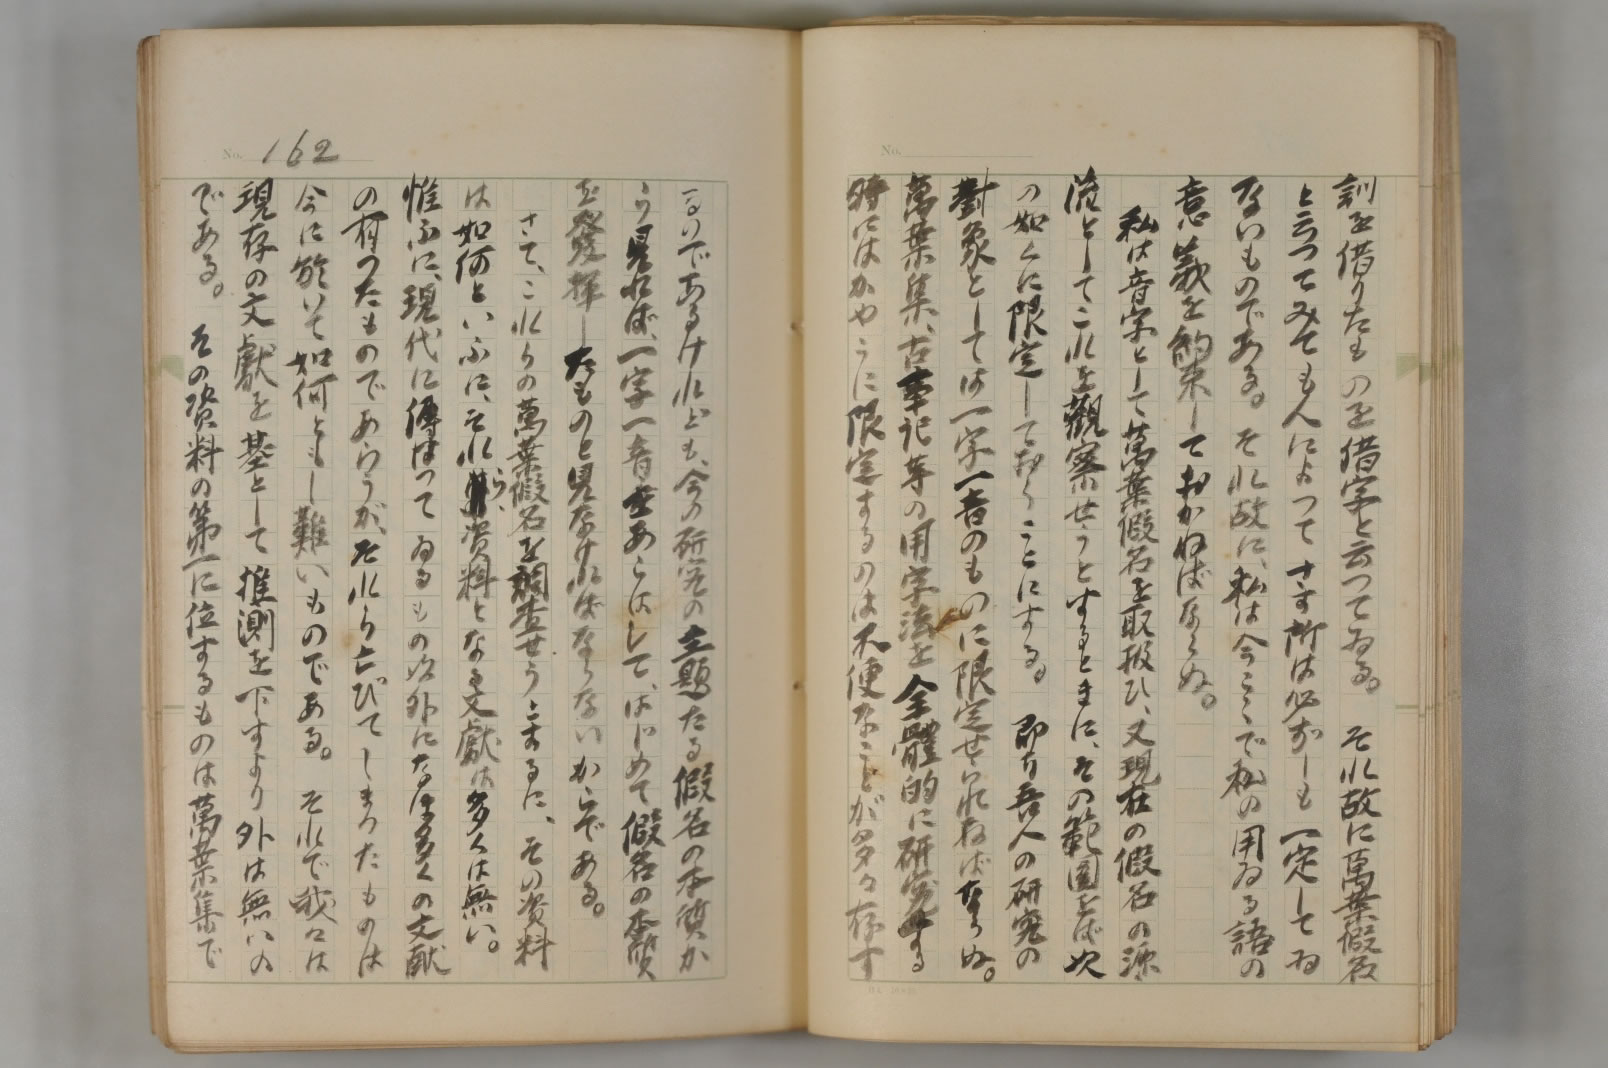 訓を借りたものを借字と云つてゐる。それ故に萬葉假名
と云つてみても人によつてさす所は必ずしも一定してゐ
ないものである。それ故に、私は今こゝで私の用ゐる語の
意義を約束しておかねばならぬ。
私は音字として萬葉假名を取扱ひ、又現在の假名の源
流としてこれを觀察せうとするときに、その範圍をば次
の如くに限定しておくことにする。即ち吾人の研究の
對象としては一字一音のものに限定せられねばならぬ。
萬葉集、古事記等の用字法を全體的に研究する
時にはかやうに限定するのは不便なことが多々存す
No.
No. 162
るのであるけれども、今の研究の主題たる假名の本質か
ら見れば、一字一音をあらはして、はじめて假名の本質
を發揮したものと見なければならないからである。
さて、これらの萬葉假名を調査せうとするに、その資料
は如何といふに、それら、資料となる文獻は多くは無い。
惟ふに、現代に傳はつてゐるもの以外になほ多くの文献
の有つたものであらうが、それら亡びてしまつたものは
今に於いて如何ともし難いものである。それで我々は
現存の文獻を基として推測を下すより外は無いの
である。その資料の第一に位するものは萬葉集で